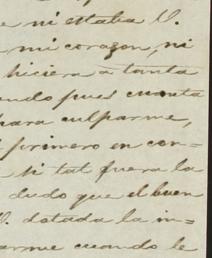 ni estaba V.
mi corazon, ni
hiciera a tanta
endo pues cuanta
para culparme,
primero en con=
si tal fuera la
dudo que el buen
V. dotada la in=
arme cuando le